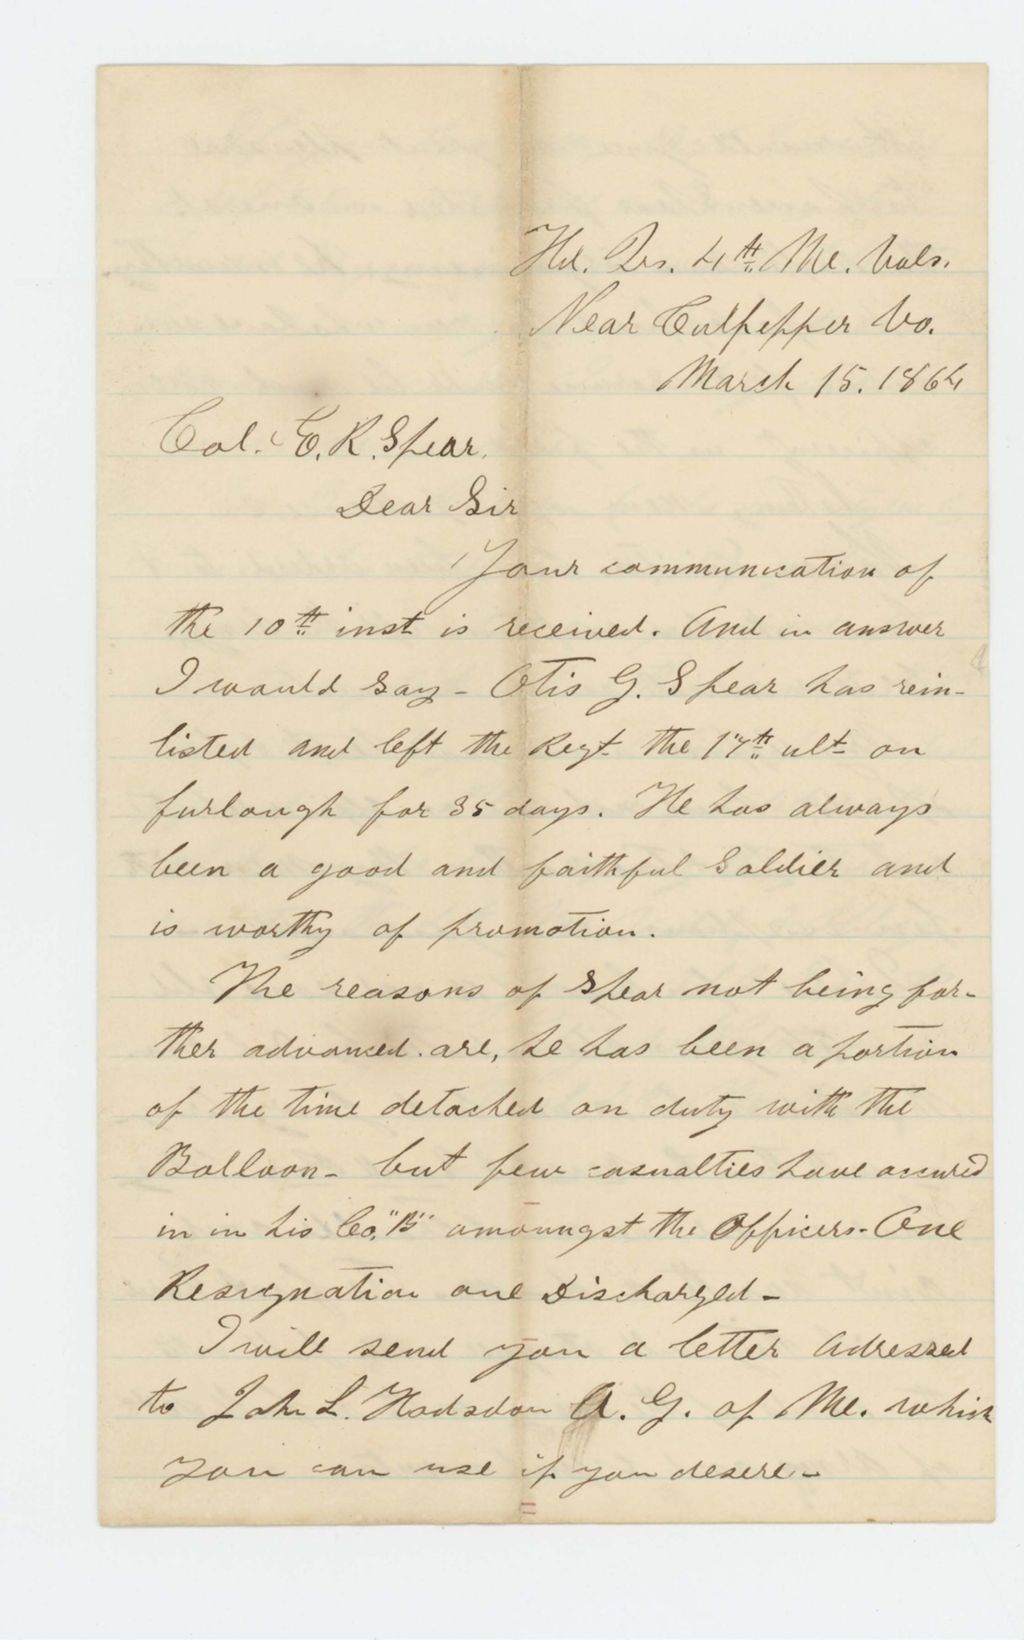 Hd. Qrs. 4th Me. Vols.
Near Culpepper Va.
March 15. 1864
Col. E. R. Spear.
Dear Sir
Your communication of
the 10th inst is received. And in answer
I would say - Otis G. Spear has rein-
listed and left the Regt the 17th ult on
furlough for 35 days. He has always
been a good and faithful Soldier and
is worthy of promotion.
The reasons of Spear not being far-
ther advanced. are, he has been a portion
of the time detached on duty with the
Balloon - but few casualties have accured
in in his Co. "B" amoungst the Officers - One
Resignation one Discharged -
I will send you a letter adressed
to John L. Hodsdon A. G. of Me. which
you can use if you desere -